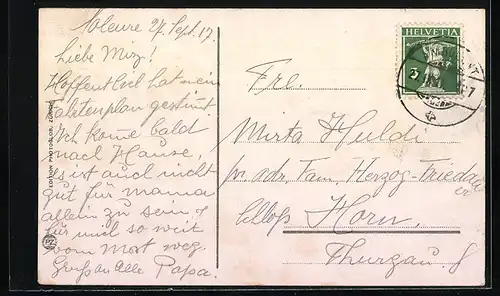 Soleure 27. Sept. 17.
Liebe Miz!
Hoffentlich hat mein
gestimmt.
Ich kome bald
nach Hause,
es ist auch nicht
gut für mama
allein zu sein, f
für mich so weit
vom Most weg.
Gruss an Alle Papa.
EDITION PHOTOGLOB, ZÜRICH
PZ
HELVETIA
5
Fre.
Mirta Huldi
pr. adr. Fam. Herzog-Friedau
er
Schloss Horn,
Thurgau.